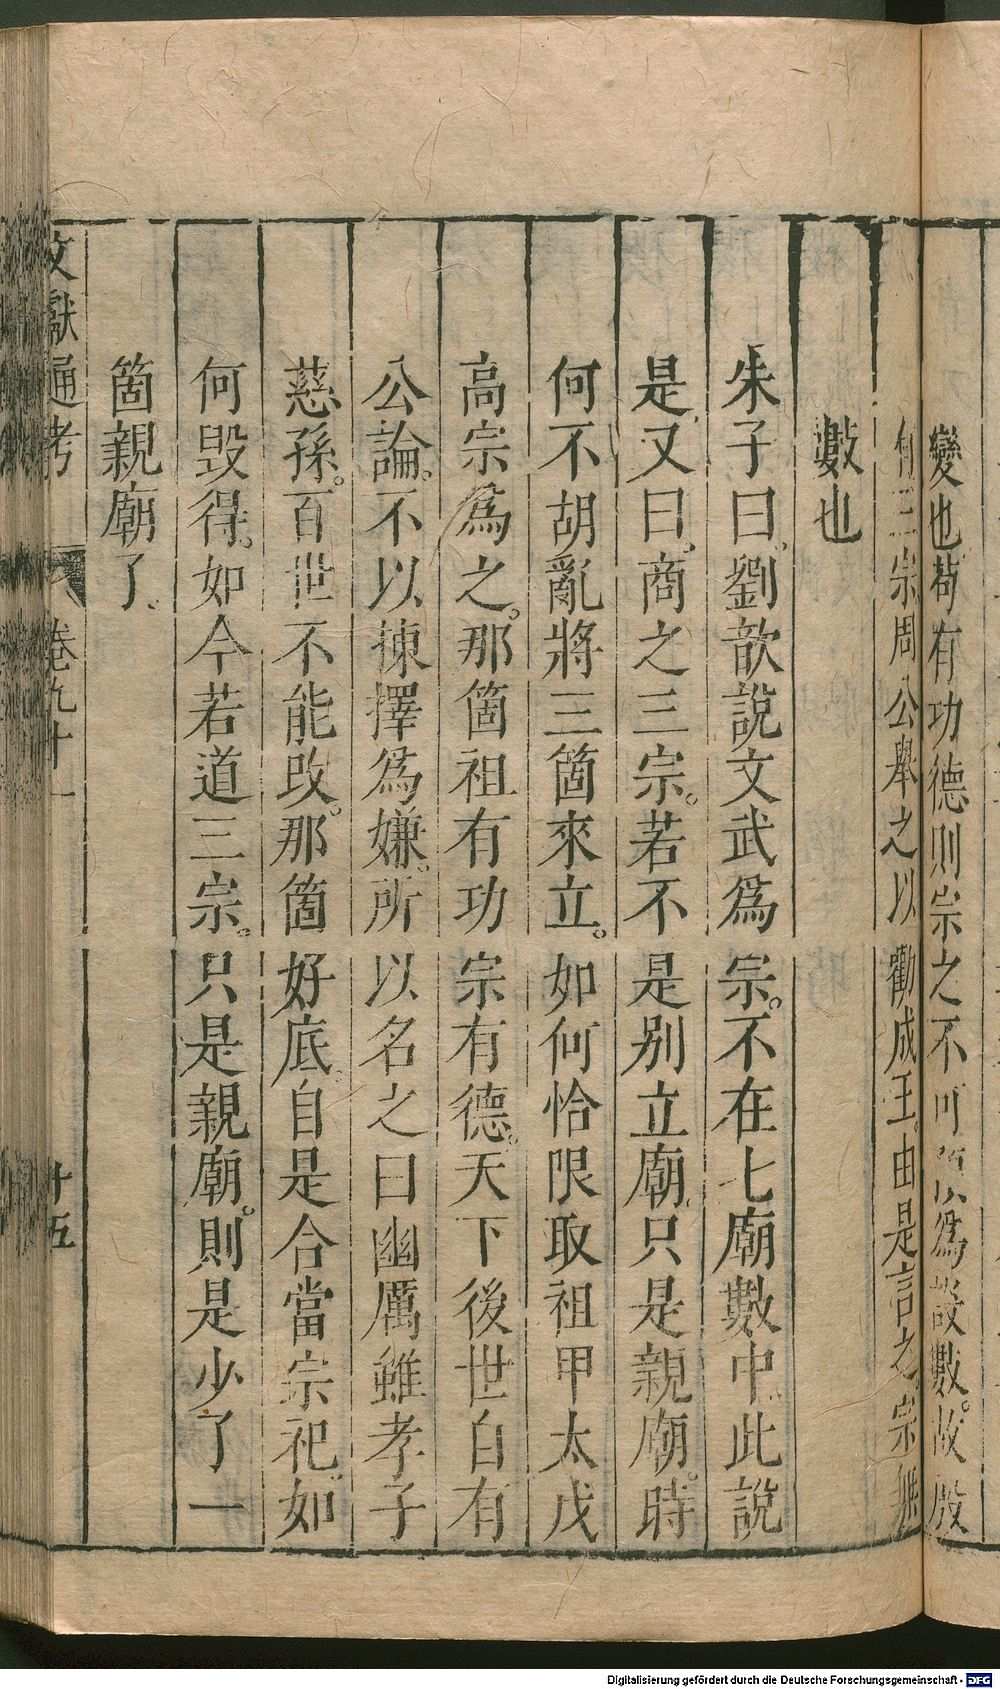 變也苟有功德則宗之不可預爲設數故殷
有三宗周公舉之以勸成王由是言之宗無
數也
朱子曰劉歆說文武爲宗。不在七廟數中此說
是又曰商之三宗。若不是別立廟只是親廟。時
何不胡亂將三箇來立。如何恰限取祖甲太戊
高宗爲之。那箇祖有功宗有德。天下後世自有
公論。不以揀擇爲嫌。所以名之曰幽厲雖孝子
慈孫。百世不能改。那箇好底。自是合當宗祀。如
何毀得。如今若道三宗。只是親廟。則是少了一
箇親廟了
文獻通考 卷九十一 十五
Digitalisierung gefördert durch die Deutsche Forschungsgemeinschaft - DFG